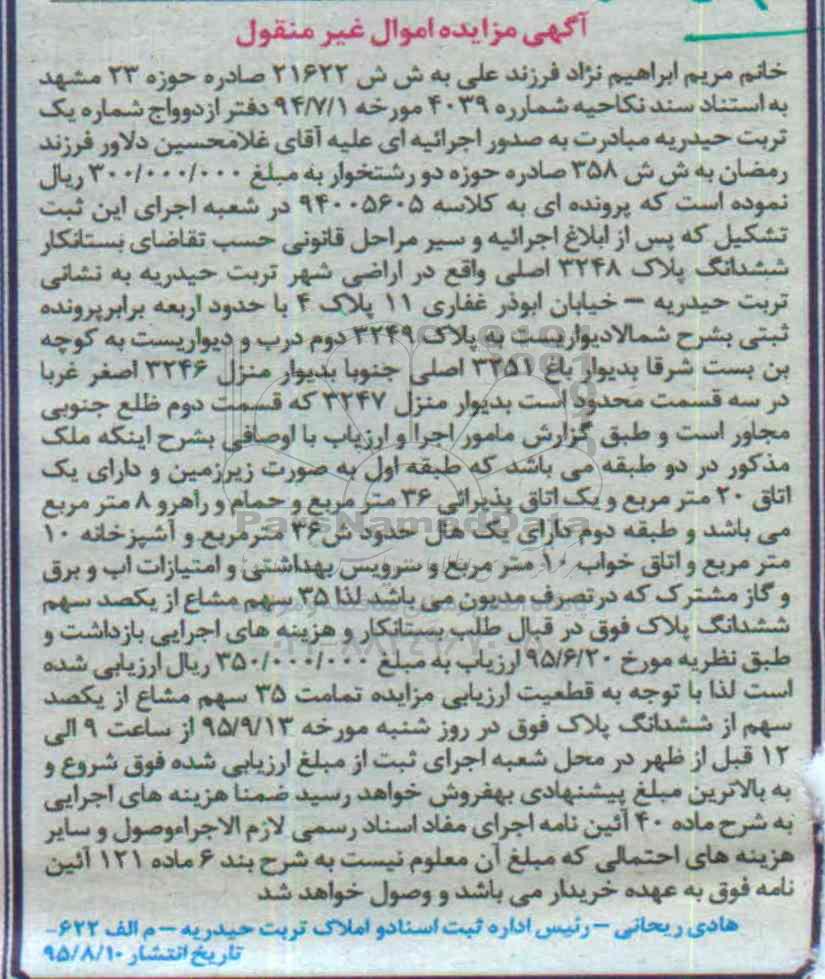 آگهی مزایده اموال غیر منقول
خانم مریم ابراهیم نژاد فرزند علی به ش ش ۲۱۶۲۲ صادره حوزه ۲۳ مشهد
به استناد سند نکاحیه شمارره ۴۰۳۹ مورخه ۹۴/۷/۱ دفتر ازدوواج شماره یک
تربت حیدریه مبادرت به صدور اجرائیه ای علیه آقای غلامحسین دلاور فرزند
رمضان به ش ش ۳۵۸ صادره حوزه دو رشتخوار به مبلغ ۳۰۰/۰۰۰/۰۰۰ ریال
نموده است که پرونده ای به کلاسه ۹۴۰۰۵۶۰۵ در شعبه اجرای این ثبت
تشکیل که پس از ابلاغ اجرائیه و سیر مراحل قانونی حسب تقاضای بستانکار
ششدانگ پلاک ۳۲۴۸ اصلی واقع در اراضی شهر تربت حیدریه به نشانی
تربت حیدریه – خیابان ابوذر غفاری ۱۱ پلاک ۴ با حدود اربعه برابرپرونده
ثبتی بشرح شمالادیواریست به پلاک ۳۲۴۹ دوم درب و دیواریست به کوچه
بن بست شرقا بدیوار باغ ۳۲۵۱ اصلی جنوبا بدیوار منزل ۳۲۴۶ اصغر غربا
در سه قسمت محدود است بدیوار منزل ۳۲۴۷ که قسمت دوم ظلع جنوبی
مجاور است و طبق گزارش مامور اجرا و ارزیاب با اوصافی بشرح اینکه ملک
مذکور در دو طبقه می باشد که طبقه اول به صورت زیرزمین و دارای یک
اتاق ۲۰ متر مربع و یک اتاق پذیرائی ۳۶ متر مربع و حمام و راهرو ۸ متر مربع
می باشد و طبقه دوم دارای یک هال حدود ش۳۶ مترمربع و آشپزخانه ۱۰
متر مربع و اتاق خواب ۱۰ متر مربع و سرویس بهداشتی و امتیازات اب و برق
و گاز مشترک که درتصرف مدیون می باشد لذا ۳۵ سهم مشاع از یکصد سهم
ششدانگ پلاک فوق در قبال طلب بستانکار و هزینه های اجرایی بازداشت و
طبق نظریه مورخ ۹۵/۶/۲۰ ارزیاب به مبلغ ۳۵۰/۰۰۰/۰۰۰ ریال ارزیابی شده
است لذا با توجه به قطعیت ارزیابی مزایده تمامت ۳۵ سهم مشاع از یکصد
سهم از ششدانگ پلاک فوق در روز شنبه مورخه ۹۵/۹/۱۳ از ساعت ۹ الی
۱۲ قبل از ظهر در محل شعبه اجرای ثبت از مبلغ ارزیابی شده فوق شروع و
به بالاترین مبلغ پیشنهادی بهفروش خواهد رسید ضمنا هزینه های اجرایی
به شرح ماده ۴۰ آئین نامه اجرای مفاد اسناد رسمی لازم الاجراءوصول و سایر
هزینه های احتمالی که مبلغ آن معلوم نیست به شرح بند ۶ ماده ۱۲۱ آئین
نامه فوق به عهده خریدار می باشد و وصول خواهد شد
هادی ریحانی – رئیس اداره ثبت اسنادو املاک تربت حیدریه – م الف ۶۲۲-
تاریخ انتشار ۹۵/۸/۱۰
ParsNamadData